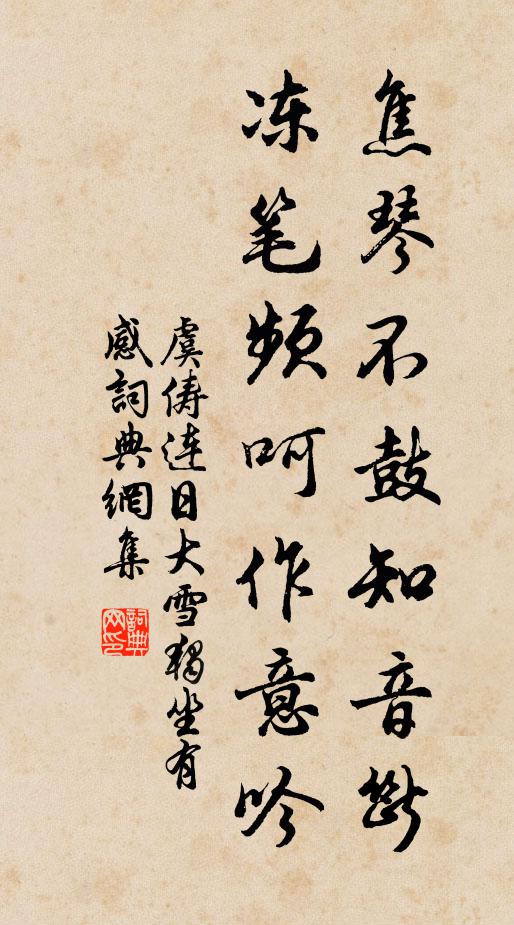 焦琴不鼓知音断
冻笔频呵作意吟
虞俦连日大雪獨坐有
感詞典網集
詞典
网印